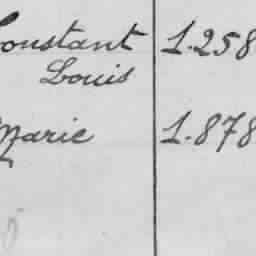 Constant 1.258
Louis
Marie 1.878